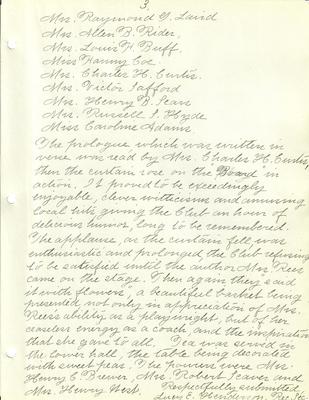 3.
Mrs. Raymond G. Laird
Mrs. Allen B. Rider,
Mrs. Louis F. Buff.
Miss Fanny Coe.
Mrs. Charles H. Curtis.
Mrs. Victor Safford
Mrs. Henry B. Sears
Mrs. Russell S. Hyde
Miss Caroline Adams
The prologue which was written in
verse was read by Mrs. Charles H. Curtis,
then the curtain rose on the "Board in
action. It proved to be exceedingly
enjoyable, clever witticisms and amusing
local hits giving the Club an hour of
delicious humor, long to be remembered.
The applause, as the curtain fell, was
enthusiastic and prolonged, the Club refusing
to be satisfied until the author Mrs. Rees
came on the stage. Then again they said
it with flowers", a beautiful basket being
presented, not only in appreciation of Mrs.
Rees's ability as a playwright, but of her
ceaseless energy as a coach, and the inspiration
that she gave to all. Tea was served in
the lower hall, the table being decorated
with sweet peas. The pourers were Mrs.
Henry E. Brewer, Mrs. Robert Seaver and
Mrs. Henry West. Respectfully submitted,
Lucy E. Henderson, Rec. Sec.